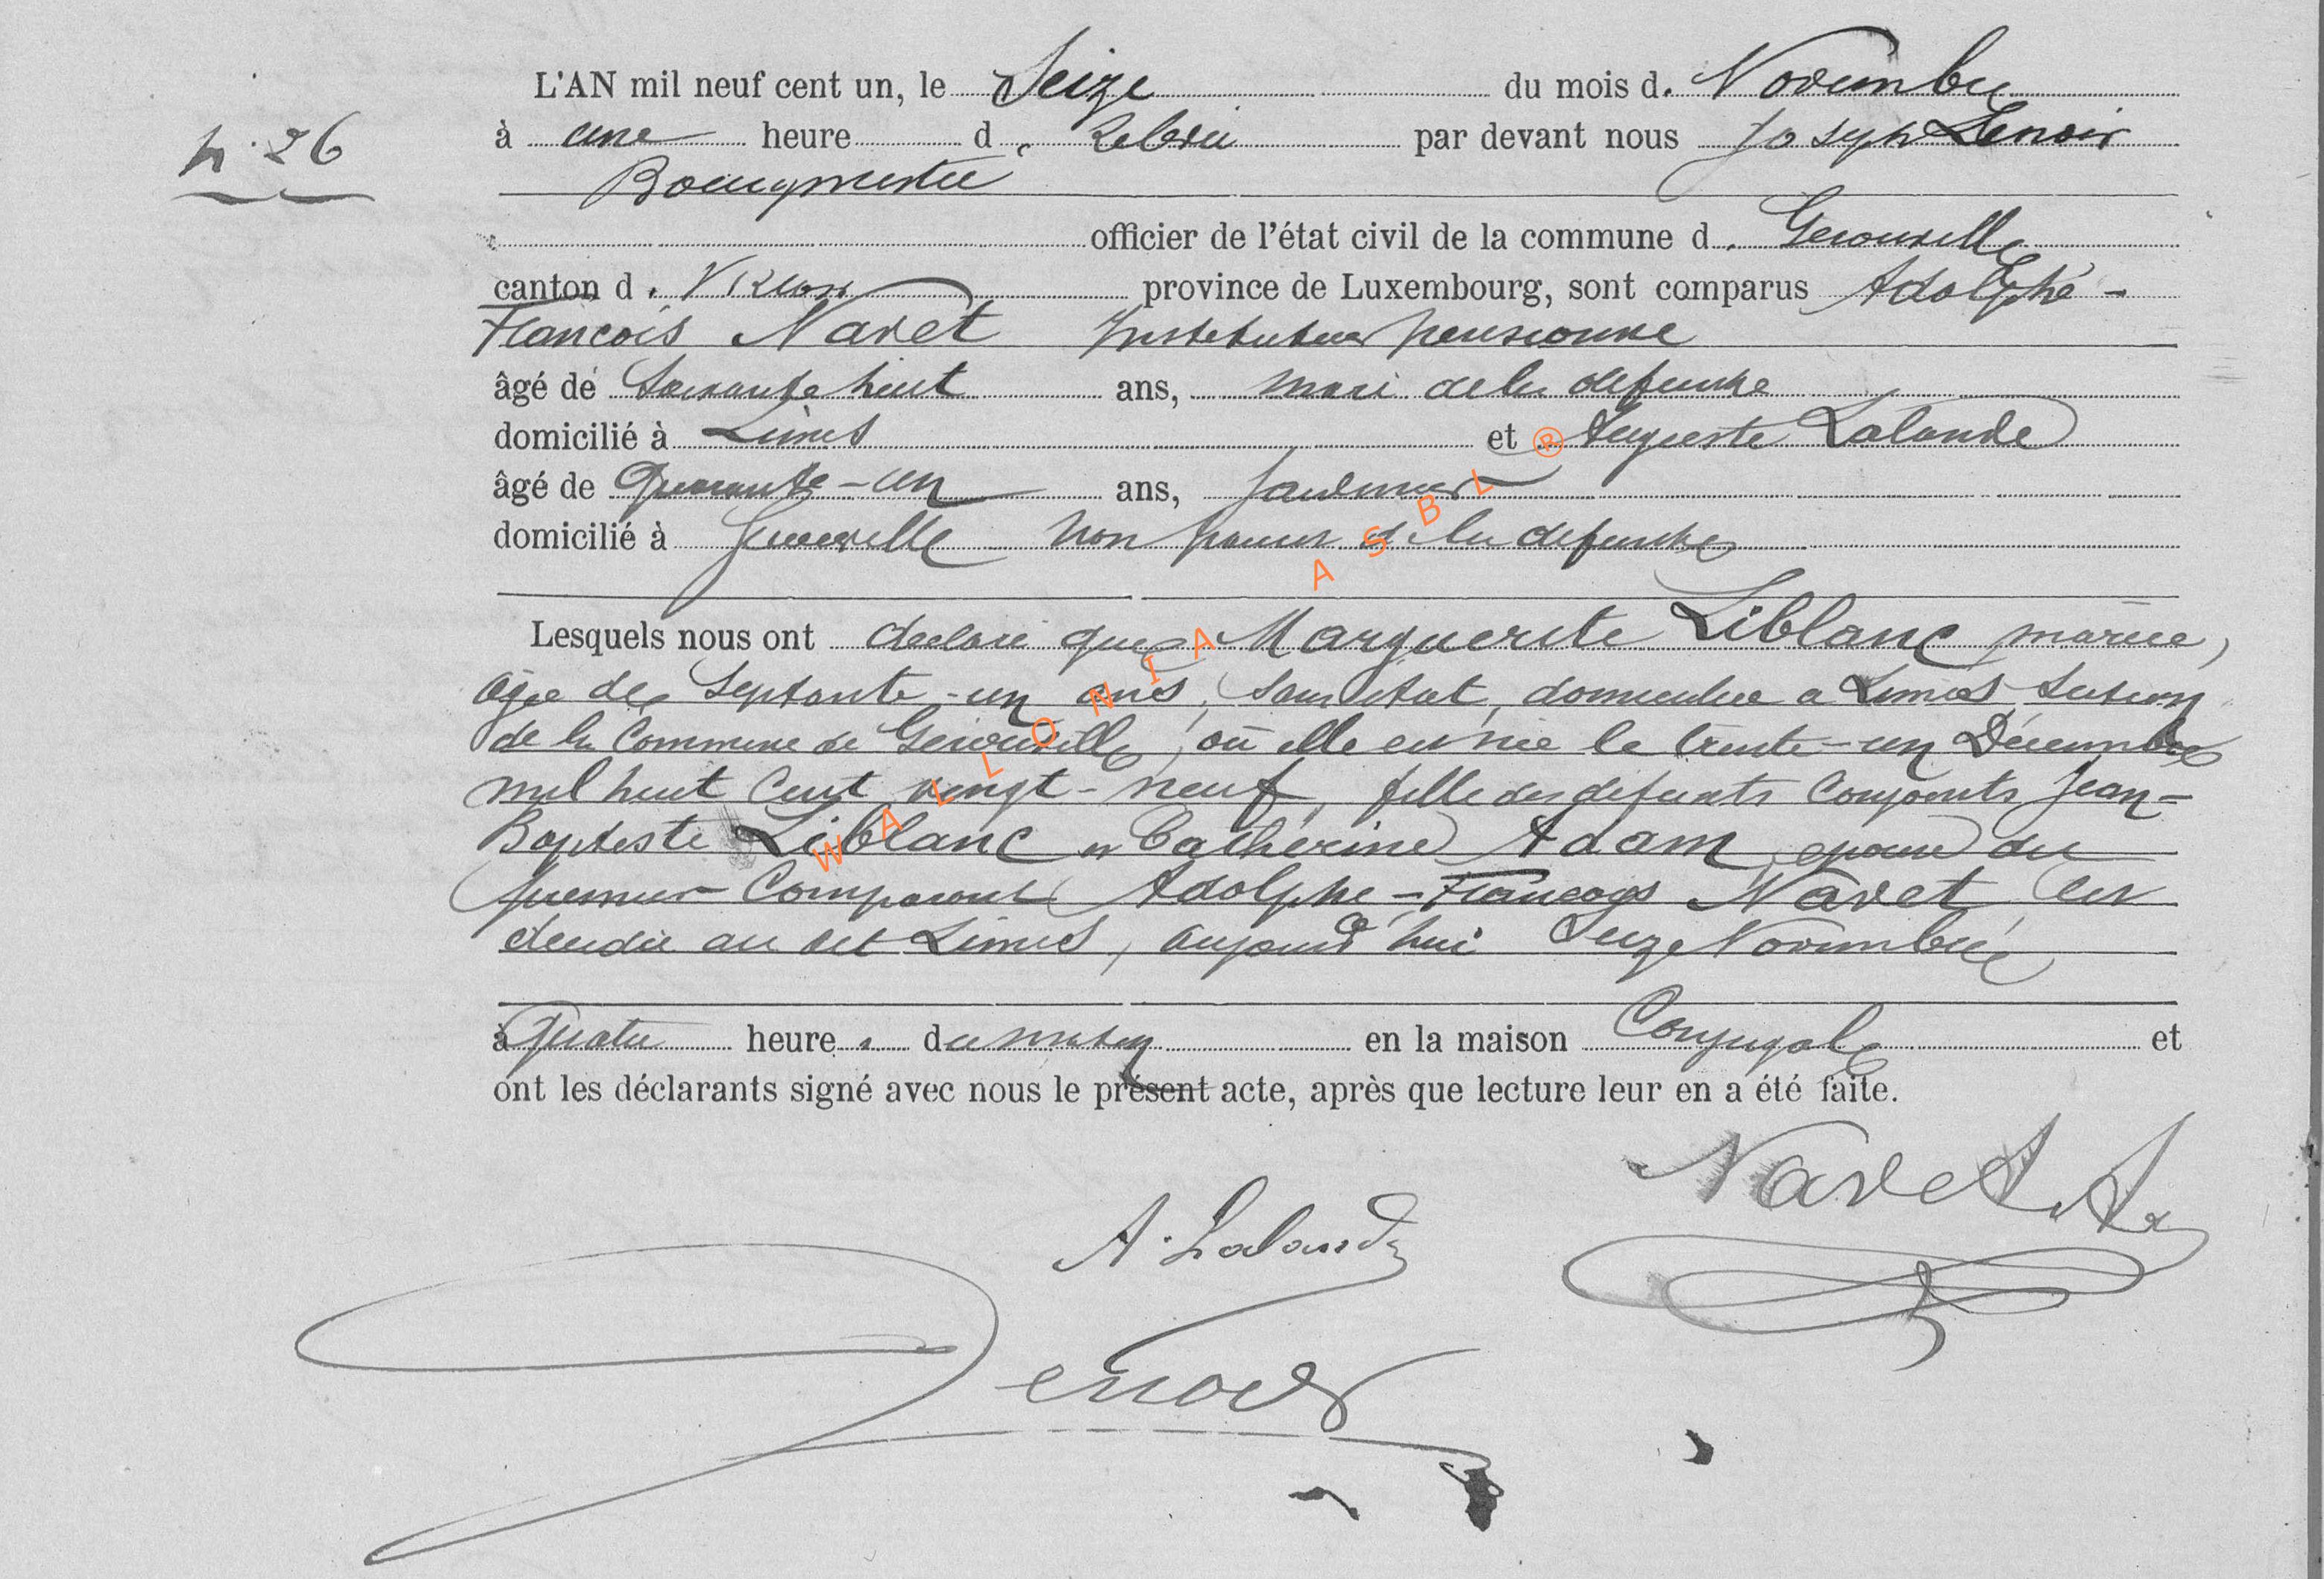 L'AN mil neuf cent un, le Seize du mois d. Novembre
n° 26
à une heure d. Relevée par devant nous Joseph Lenoir
Bourgmestre
officier de l'état civil de la commune d. Gerouville
canton d. Virton province de Luxembourg, sont comparus Adolphe-
François Navet Instituteur pensionné
âgé de Soixante huit ans, mari de la défunte
domicilié à Limes et Auguste Lalande
âgé de Quarante-un ans,
domicilié à Gerouville non parent de la défunte
Lesquels nous ont déclaré que Marguerite Liblanc mariée,
âgée de Septante-un ans, sans état, domiciliée a Limes, Section
de la Commune de Gérouville, où elle est née le trente-un Décembre
mil huit cent vingt-neuf, fille des défunts Conjoints Jean-
Baptiste Liblanc et Catherine Adam, épouse du
premier Comparant Adolphe-François Navet, est
décédée au dit Limes, aujourd'hui Seize Novembre
à Quatre heure. du matin en la maison Conjugale et
ont les déclarants signé avec nous le présent acte, après que lecture leur en a été faite.
Navet A
A. Lalande
Lenoir
WALLONIA ASBL ®